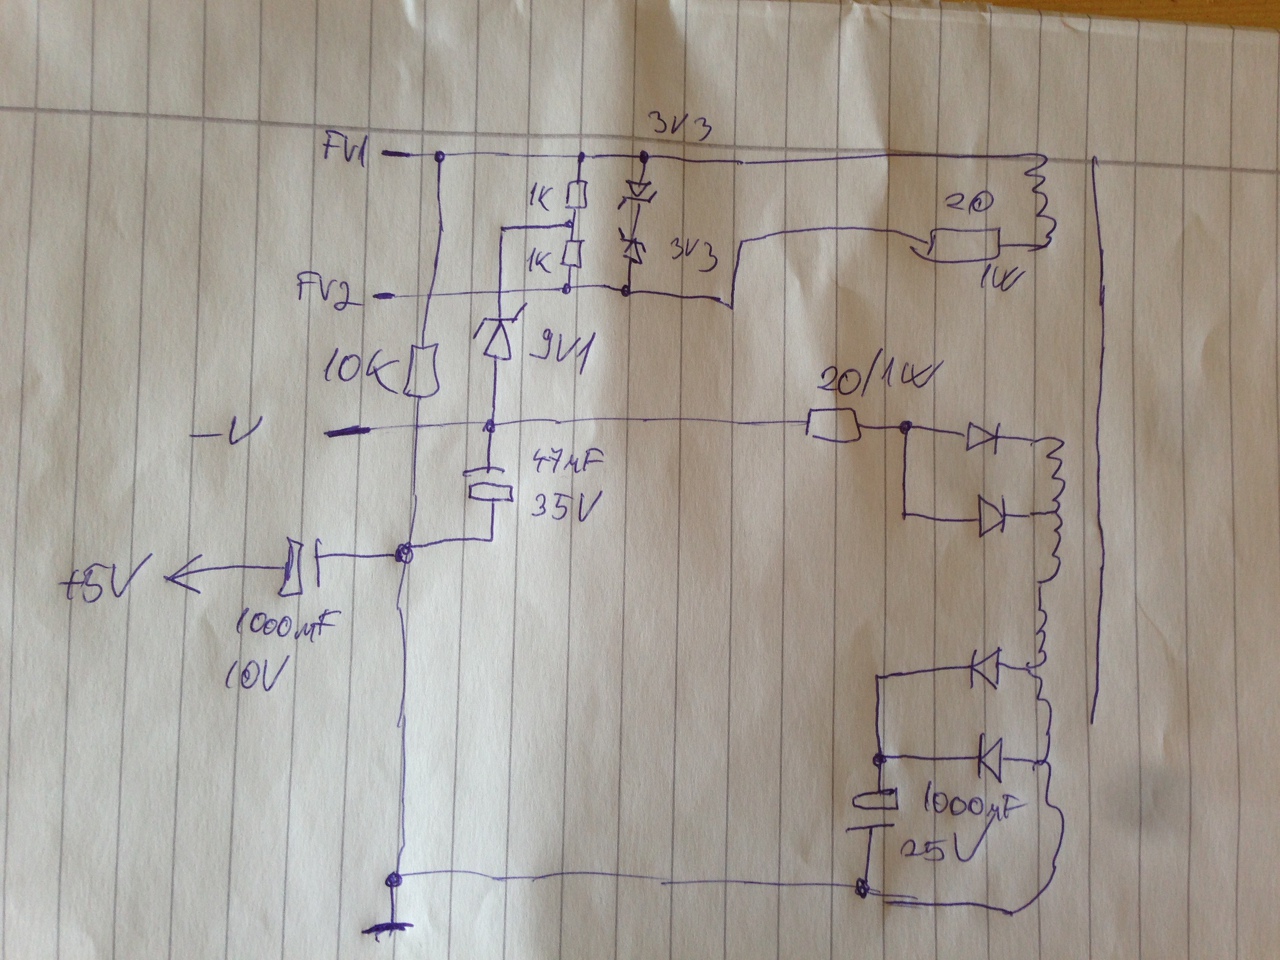 3V3
FV1
1K
20
1K
3V3
1W
FV2
9V1
10K
20/1W
-V
47µF
35V
+5V
1000µF
10V
1000µF
25V